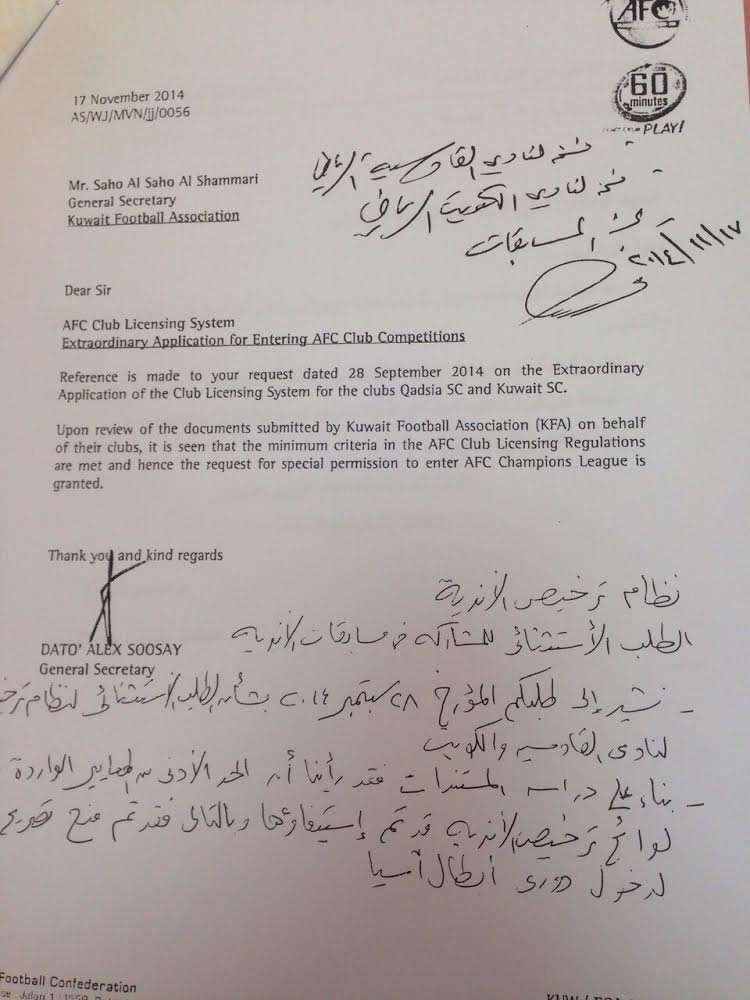 AFC
60
minutes
PLAY!
17 November 2014
AS/WJ/MVN/jj/0056
نسخة لنادي القادسية الرياضي
نسخة لنادي الكويت الرياضي
المسابقات
٢٠١٤/١١/١٧
Mr. Saho Al Saho Al Shammari
General Secretary
Kuwait Football Association
Dear Sir
AFC Club Licensing System
Extraordinary Application for Entering AFC Club Competitions
Reference is made to your request dated 28 September 2014 on the Extraordinary
Application of the Club Licensing System for the clubs Qadsia SC and Kuwait SC.
Upon review of the documents submitted by Kuwait Football Association (KFA) on behalf
of their clubs, it is seen that the minimum criteria in the AFC Club Licensing Regulations
are met and hence the request for special permission to enter AFC Champions League is
granted.
Thank you and kind regards
DATO' ALEX SOOSAY
General Secretary
نظام ترخيص الأندية
الطلب الأستثنائى للمشاركة فى مسابقات الأندية
- نشير إلى طلبكم المؤرخ ٢٨ سبتمبر ٢٠١٤ بشأن الطلب الأستثنائى لنظام
لنادى القادسيه والكويت
- بناء على دراسه المستندات فقد رأينا أن الحد الأدنى من المعايير الواردة
لوائح ترخيص الأندية قد تم إستيفاؤها وبالتالى فقد تم منح تصريح
لدخول دورى أبطال آسيا
Football Confederation